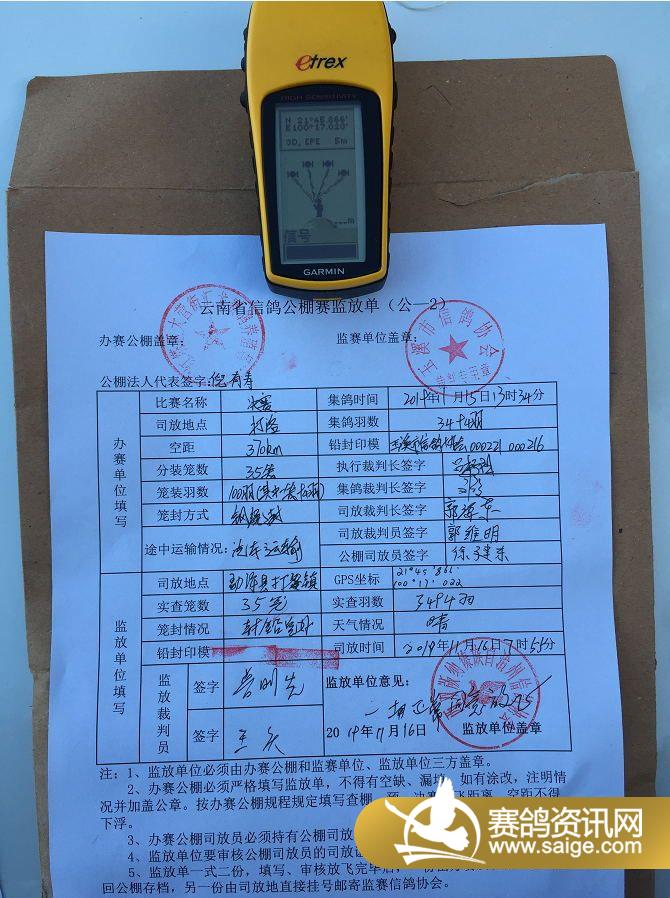 etrex
HIGH SENSITIVITY
N 21°45.866'
E100°17.020'
3D, EPE 5m
信号
GARMIN
云南省信鸽公棚赛监放单（公—2）
办赛公棚盖章：
监赛单位盖章：
玉溪市信鸽协会
公棚法人代表签字：倪有寿
办赛单位填写
比赛名称 决赛 集鸽时间 2019年11月15日13时34分
司放地点 打洛 集鸽羽数 3494羽
空距 370km 铅封印模 000221 000216
分装笼数 35笼 执行裁判长签字
笼装羽数 集鸽裁判长签字
笼封方式 司放裁判长签字
司放裁判员签字 郭维明
途中运输情况：汽车运输 公棚司放员签字
监放单位填写
司放地点 勐海县打洛镇 GPS坐标 21°45′866″ 100°17′022
实查笼数 35笼 实查羽数 3494羽
笼封情况 天气情况 晴
铅封印模 司放时间 2019年11月16日7时55分
监放裁判员
签字
签字
监放单位意见：
一切正常同意放飞
2019年11月16日 监放单位盖章
注：1、监放单位必须由办赛公棚和监赛单位、监放单位三方盖章。
2、办赛公棚必须严格填写监放单，不得有空缺、漏填，如有涂改，注明情
况并加盖公章。按办赛公棚规程规定填写查棚、预、决赛 飞距离，空距不得
下浮。
3、办赛公棚司放员必须持有公棚司放
4、监放单位要审核公棚司放员的司放证
5、监放单一式二份，填写、审核放飞完毕后，
回公棚存档，另一份由司放地直接挂号邮寄监赛信鸽协会。
赛鸽资讯网
www.saige.com